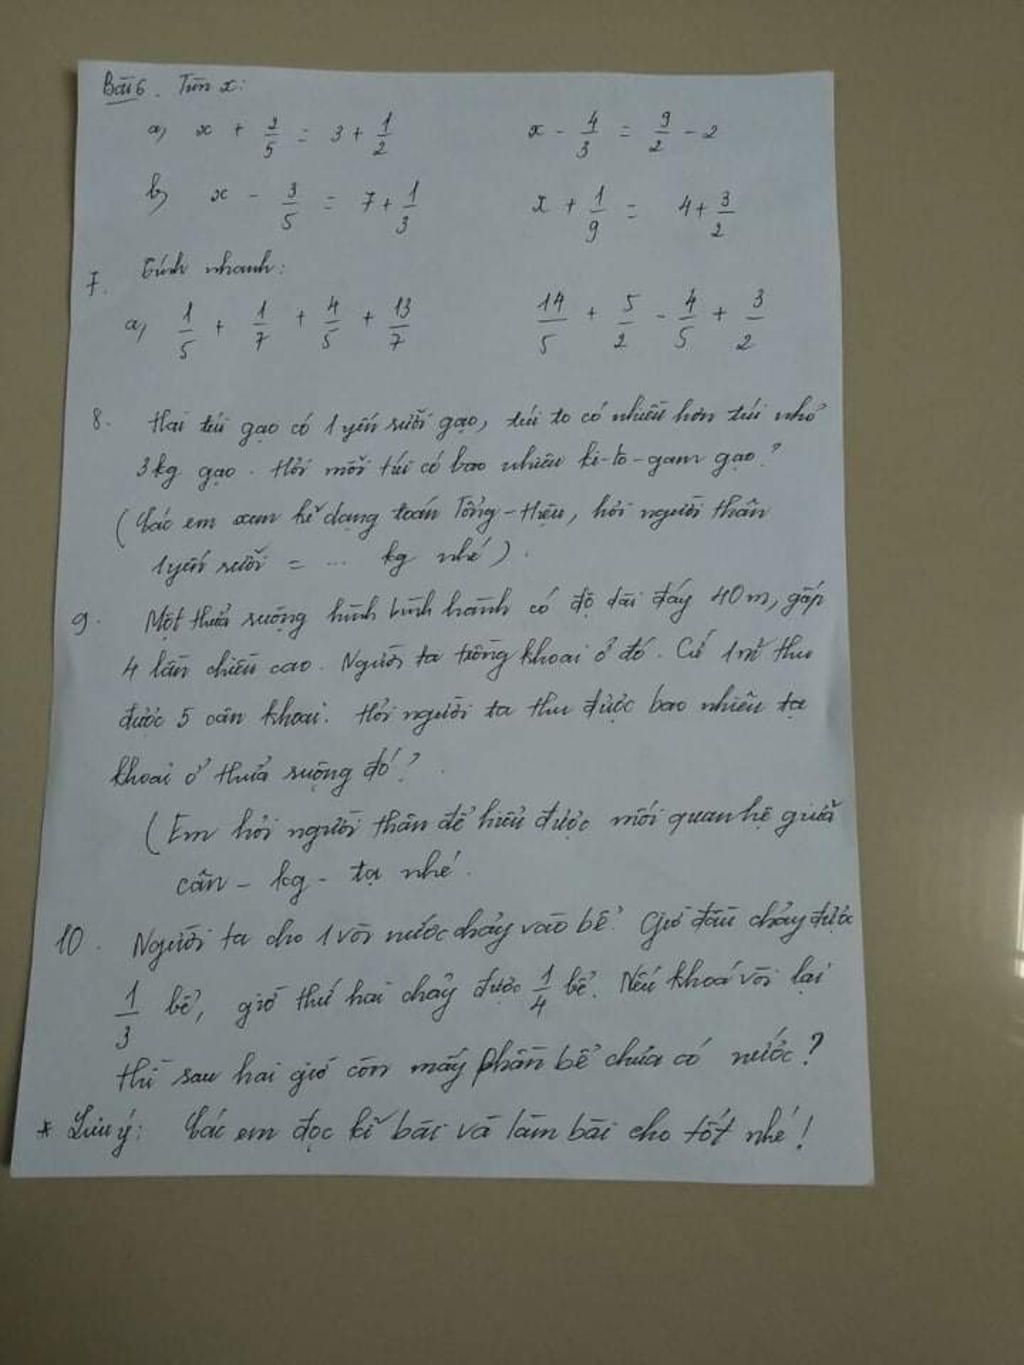 Bài 6. Tìm x:
a, x + 2/5 = 3 + 1/2   x - 4/3 = 9/2 - 2
b, x - 3/5 = 7 + 1/3   x + 1/9 = 4 + 3/2
7. Tính nhanh:
a, 1/5 + 1/7 + 4/5 + 13/7   14/5 + 5/2 - 4/5 + 3/2
8. Hai túi gạo có 1 yến rưỡi gạo, túi to có nhiều hơn túi nhỏ
3kg gạo. Hỏi mỗi túi có bao nhiêu ki-lô-gam gạo?
(Các em xem kĩ dạng toán Tổng - Hiệu, hỏi người thân
1 yến rưỡi = ... kg nhé).
9. Một thửa ruộng hình bình hành có độ dài đáy 40m, gấp
4 lần chiều cao. Người ta trồng khoai ở đó. Cứ 1m² thu
được 5 cân khoai. Hỏi người ta thu được bao nhiêu tạ
khoai ở thửa ruộng đó?
(Em hỏi người thân để hiểu được mối quan hệ giữa
cân - kg - tạ nhé.
10. Người ta cho 1 vòi nước chảy vào bể. Giờ đầu chảy được
1/3 bể, giờ thứ hai chảy được 1/4 bể. Nếu khoá vòi lại
thì sau hai giờ còn mấy phần bể chưa có nước?
* Lưu ý: Các em đọc kĩ bài và làm bài cho tốt nhé!